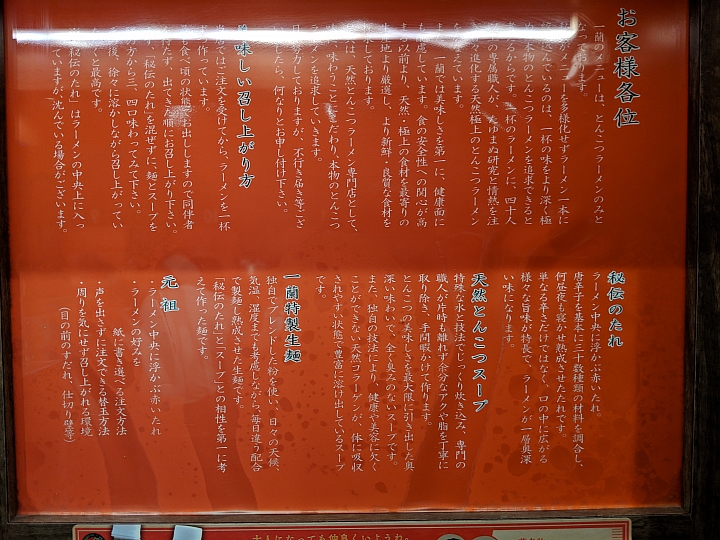 お客様各位
一蘭のメニューは、とんこつラーメンのみと
なっております。
メニューを多様化せずラーメン一本に
いるのは、一杯の味をより深く極
め本物のとんこつラーメンを追求できると
あるからです。一杯のラーメンに、四十人
の専属職人が、たゆまぬ研究と情熱を注
々進化する天然極上のとんこつラーメン
えています。
、一蘭では美味しさを第一に、健康面に
も配慮しています。食の安全性への関心が高
まる以前より、天然・極上の食材を最寄りの
生産地より厳選し、より新鮮・良質な食材を
しております。
は、天然とんこつラーメン専門店として、
味わうことにこだわり、本物のとんこつ
ラーメンを追求していきます。
努力しておりますが、不行き届き等ござ
ましたら、何なりとお申し付け下さい。
美味しい召し上がり方
当店ではご注文を受けてからラーメンを一杯
ずつ作っています。
最も食べ頃の状態でお出ししますので同伴者
待たず、出てきた順にお召し上がり下さい。
「秘伝のたれ」を混ぜずに、麺とスープを
の方から三、四口味わってみて下さい。
の後、徐々に溶かしながら召し上がってい
くと最高です。
「秘伝のたれ」はラーメンの中央上に入っ
ていますが、沈んでいる場合がございます。
秘伝のたれ
ラーメン中央に浮かぶ赤いたれ。
唐辛子を基本に三十数種類の材料を調合し、
何昼夜も寝かせ熟成させたたれです。
単なる辛さだけではなく、口の中に広がる
様々な旨味が特長で、ラーメンが一層奥深
い味になります。
天然とんこつスープ
特殊な水と技法でじっくり炊き込み、専門の
職人が片時も離れず余分なアクや脂を丁寧に
取り除き、手間暇かけて作ります。
とんこつの美味しさを最大限に引き出した奥
深い味わいで、全く臭みのないスープです。
また、独自の技法により、健康や美容に欠く
ことができない天然コラーゲンが、体に吸収
されやすい状態で豊富に溶け出しているスープ
です。
一蘭特製生麺
独自でブレンドした粉を使い、日々の天候、
気温、湿度までも考慮しながら、毎日違う配合
で製麺し熟成させた生麺です。
「秘伝のたれ」と「スープ」との相性を第一に考
えて作った麺です。
元祖
・ラーメン中央に浮かぶ赤いたれ
・ラーメンの好みを
紙に書き選べる注文方法
・声を出さずに注文できる替玉方法
・周りを気にせず召し上がれる環境
(目の前のすだれ、仕切り壁等)
大人になっても仲良くいようね。